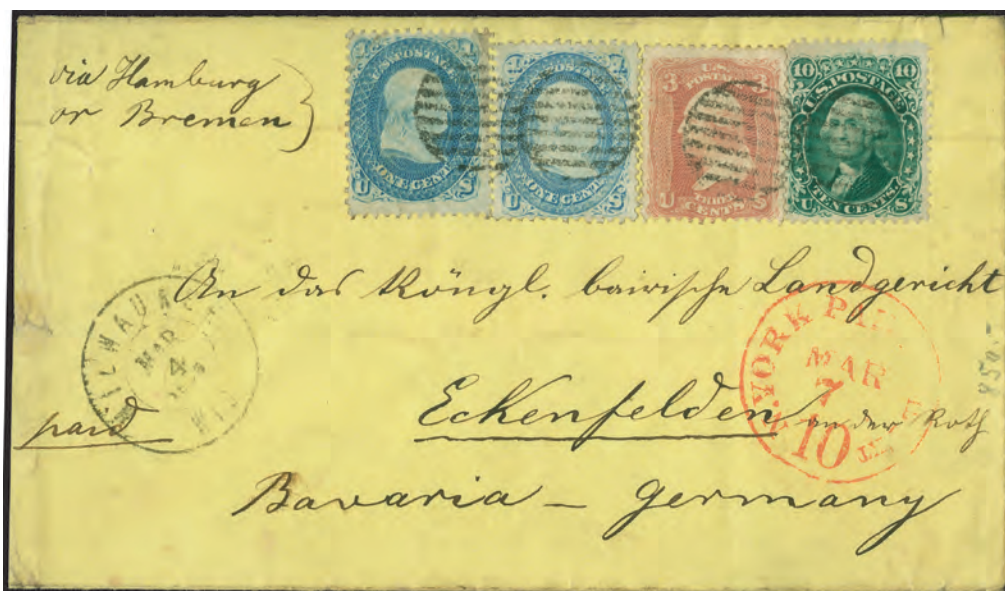 via Hamburg
or Bremen
1 U.S. POSTAGE 1
U ONE CENT S
1 U.S. POSTAGE 1
U ONE CENT S
3 U.S. POSTAGE 3
U THREE CENTS S
10 U.S. POSTAGE 10
U TEN CENTS S
An das Köngl. bairische Landgericht
MILWAUKEE WIS
MAR
4
N. YORK PAID
MAR
7
10
paid
Eckenfelden an der Roth
Bavaria – Germany